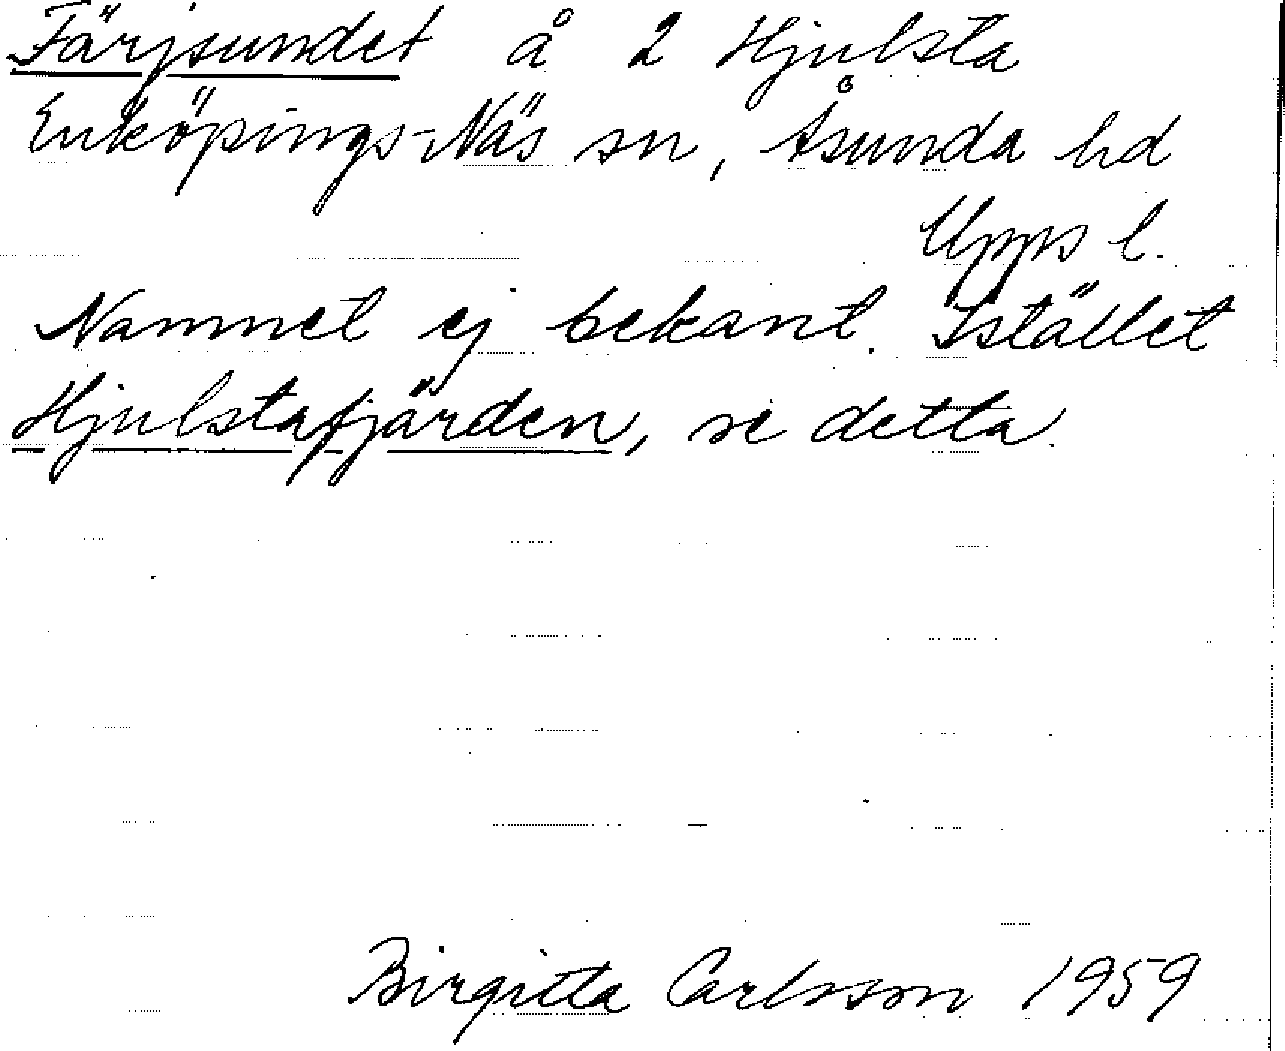 Färjsundet å 2 Hjulsta
Enköpings-Näs sn, Åsunda hd
Upps l.
Namnet ej bekant. Istället
Hjulstafjärden, se detta.
Birgitta Carlsson 1959